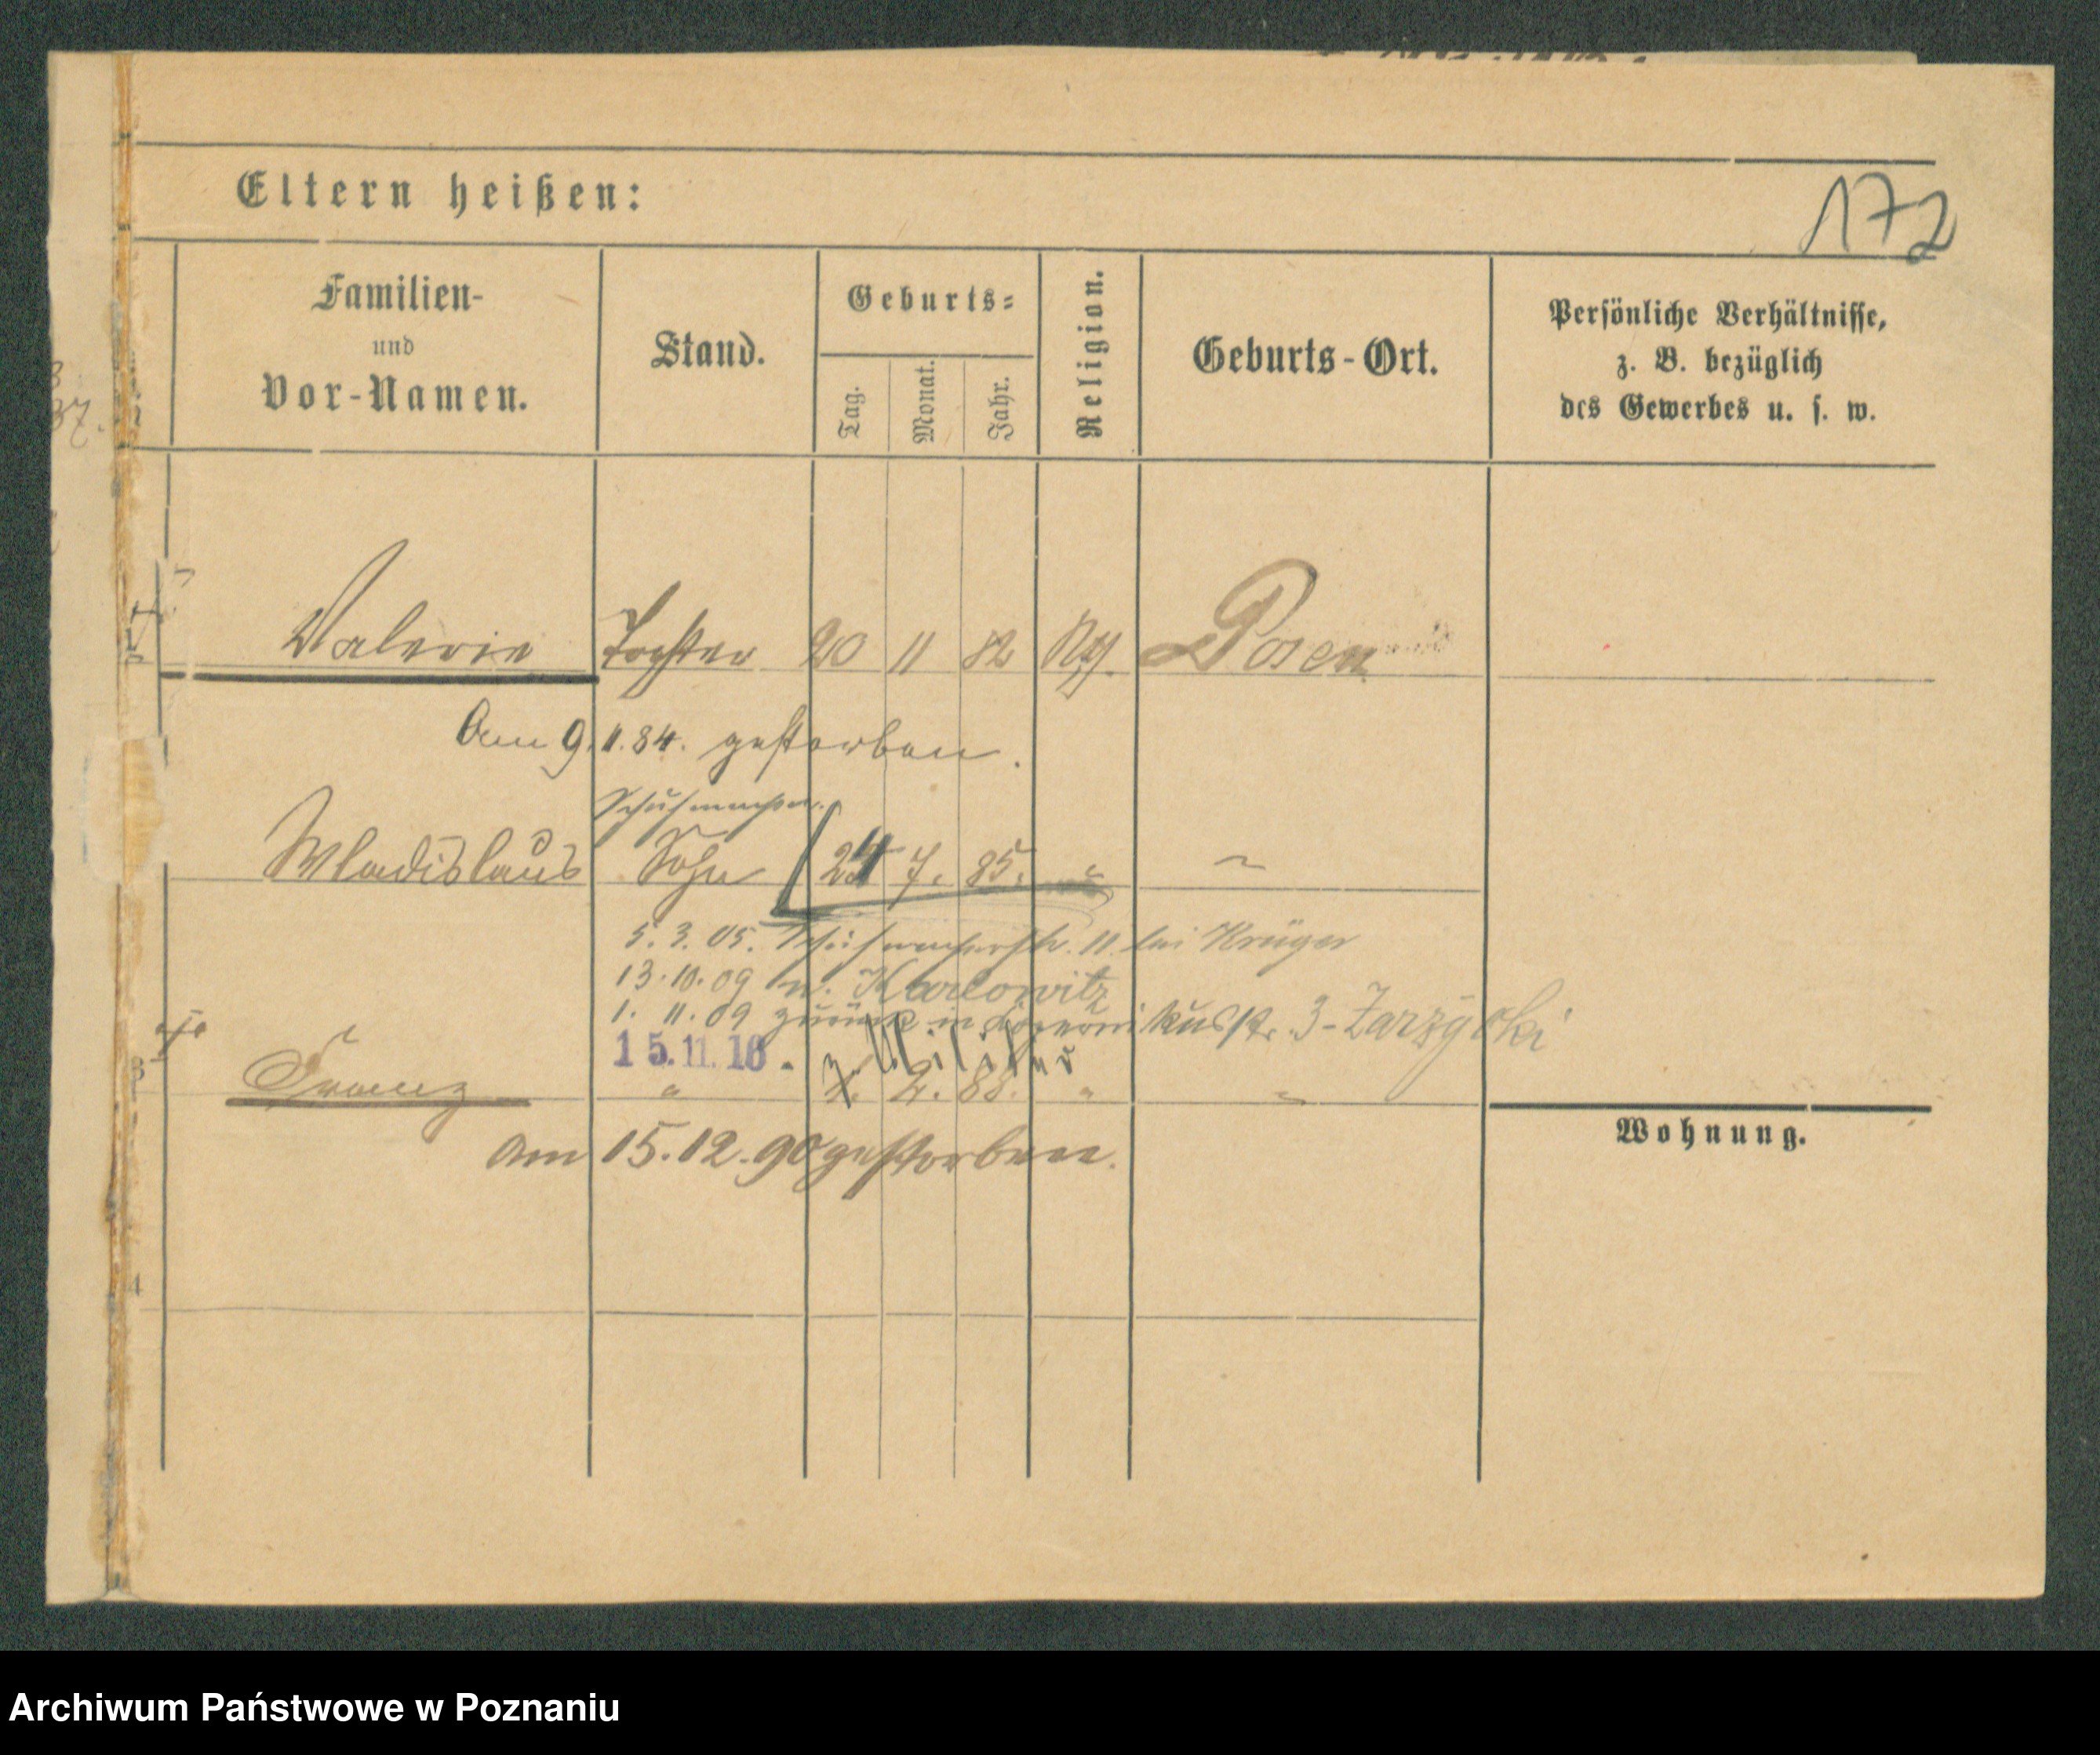 172
Eltern heißen:
Familien-
und
Vor-Namen.
Stand.
Geburts-
Tag.
Monat.
Jahr.
Religion.
Geburts-Ort.
Persönliche Verhältnisse,
z. B. bezüglich
des Gewerbes u. s. w.
37.
Valerie Tochter 20 11 82 Posen
Am 9. 11. 84. gestorben.
Schuhmacher.
Wladislaus Sohn 24 7. 85. "
5. 3. 05. Schuhmacherstr. 11. bei Krüger
13.10.09 n. Karlowitz
1. 11. 09 zurück in Kopernikusstr. 3 - Zarzycki
15.11.16. z. Militär
Franz " 2. 88. "
am 15.12.90 gestorben.
Wohnung.
3
4
Archiwum Państwowe w Poznaniu